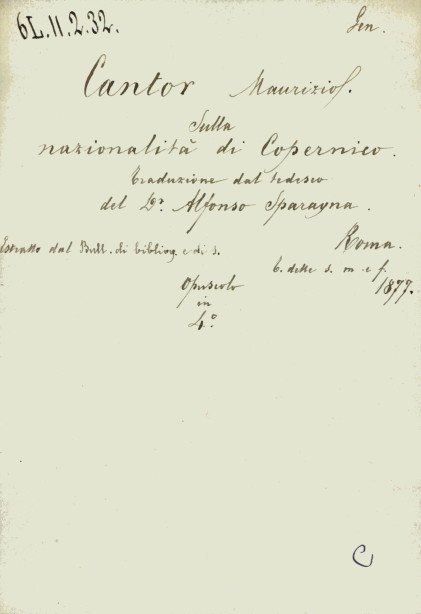 6L.11.2.32.
Gen.
Cantor Maurizio.
Sulla
nazionalità di Copernico.
Traduzione dal tedesco
del Dr. Alfonso Sparagna.
Estratto dal Bull. di bibliog. e di s.
Roma.
t. delle s. m. e f.
1877.
Opuscolo
in
4º
C